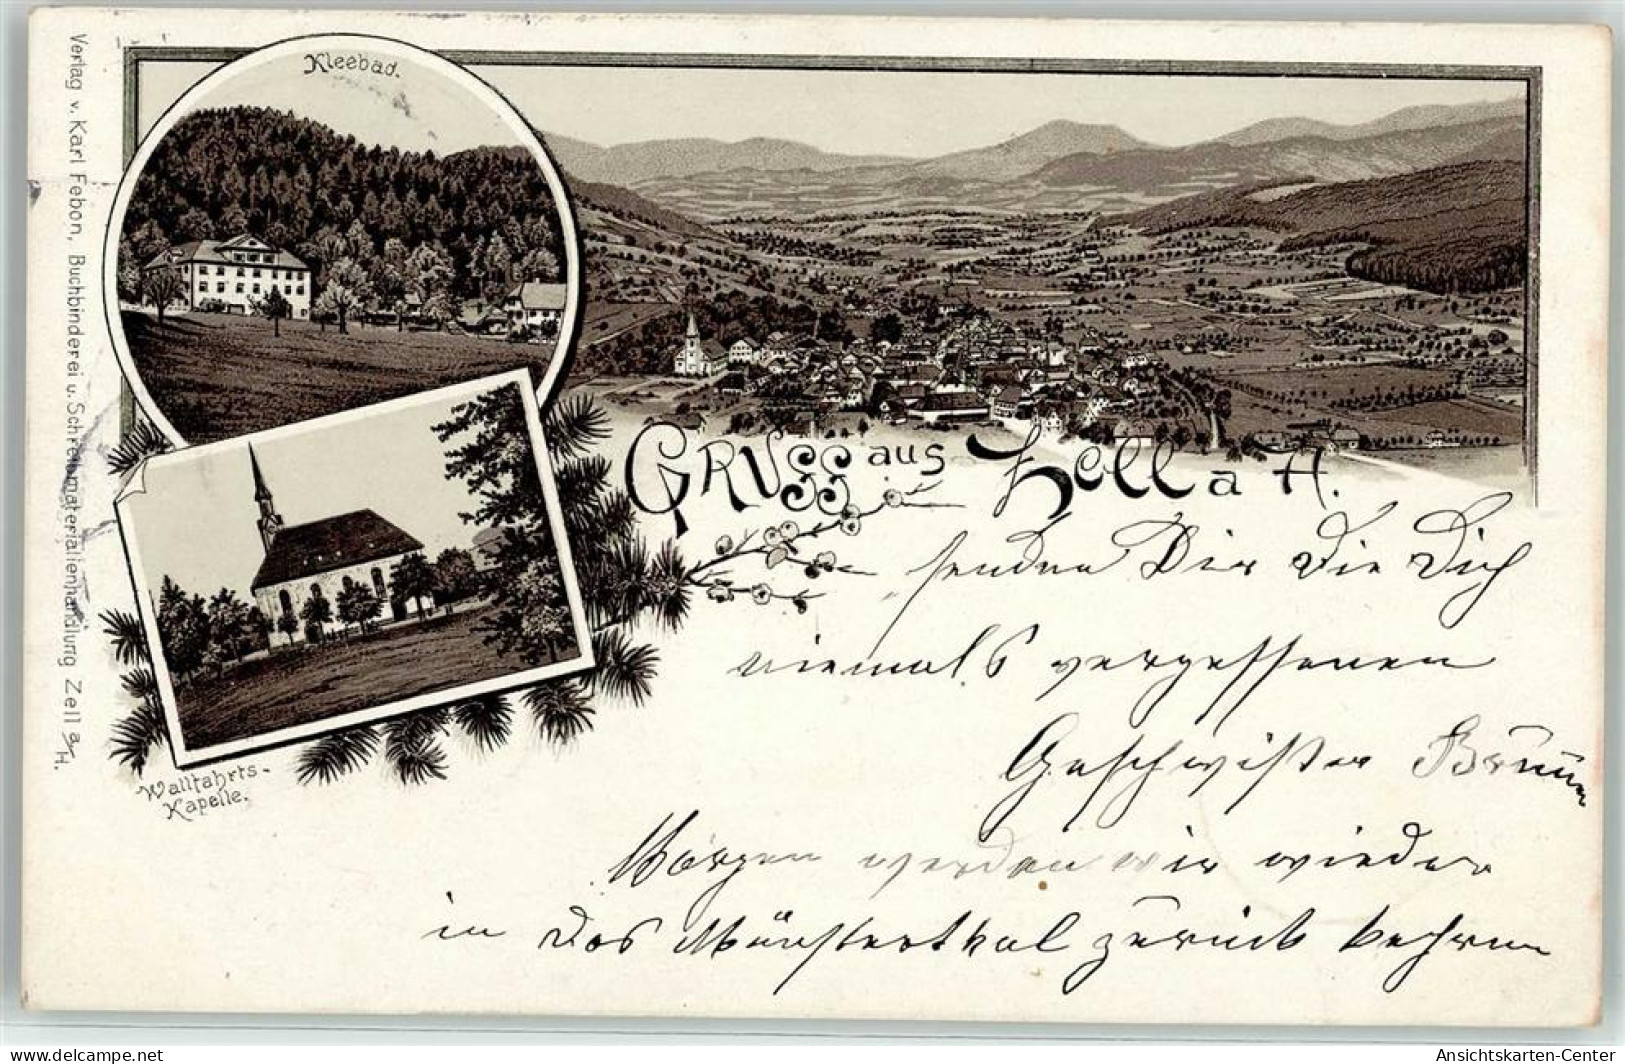 Kleebad.
Verlag v. Karl Febon, Buchbinderei u. Schreibmaterialienhandlung Zell a/H.
Gruss aus Zell a H.
senden Dir die Dich
niemals vergessenen
Geschwister
Wallfahrts-
Kapelle.
Morgen werden wir wieder
in das Münsterthal zurück kehren
delcampe.net
Ansichtskarten-Center